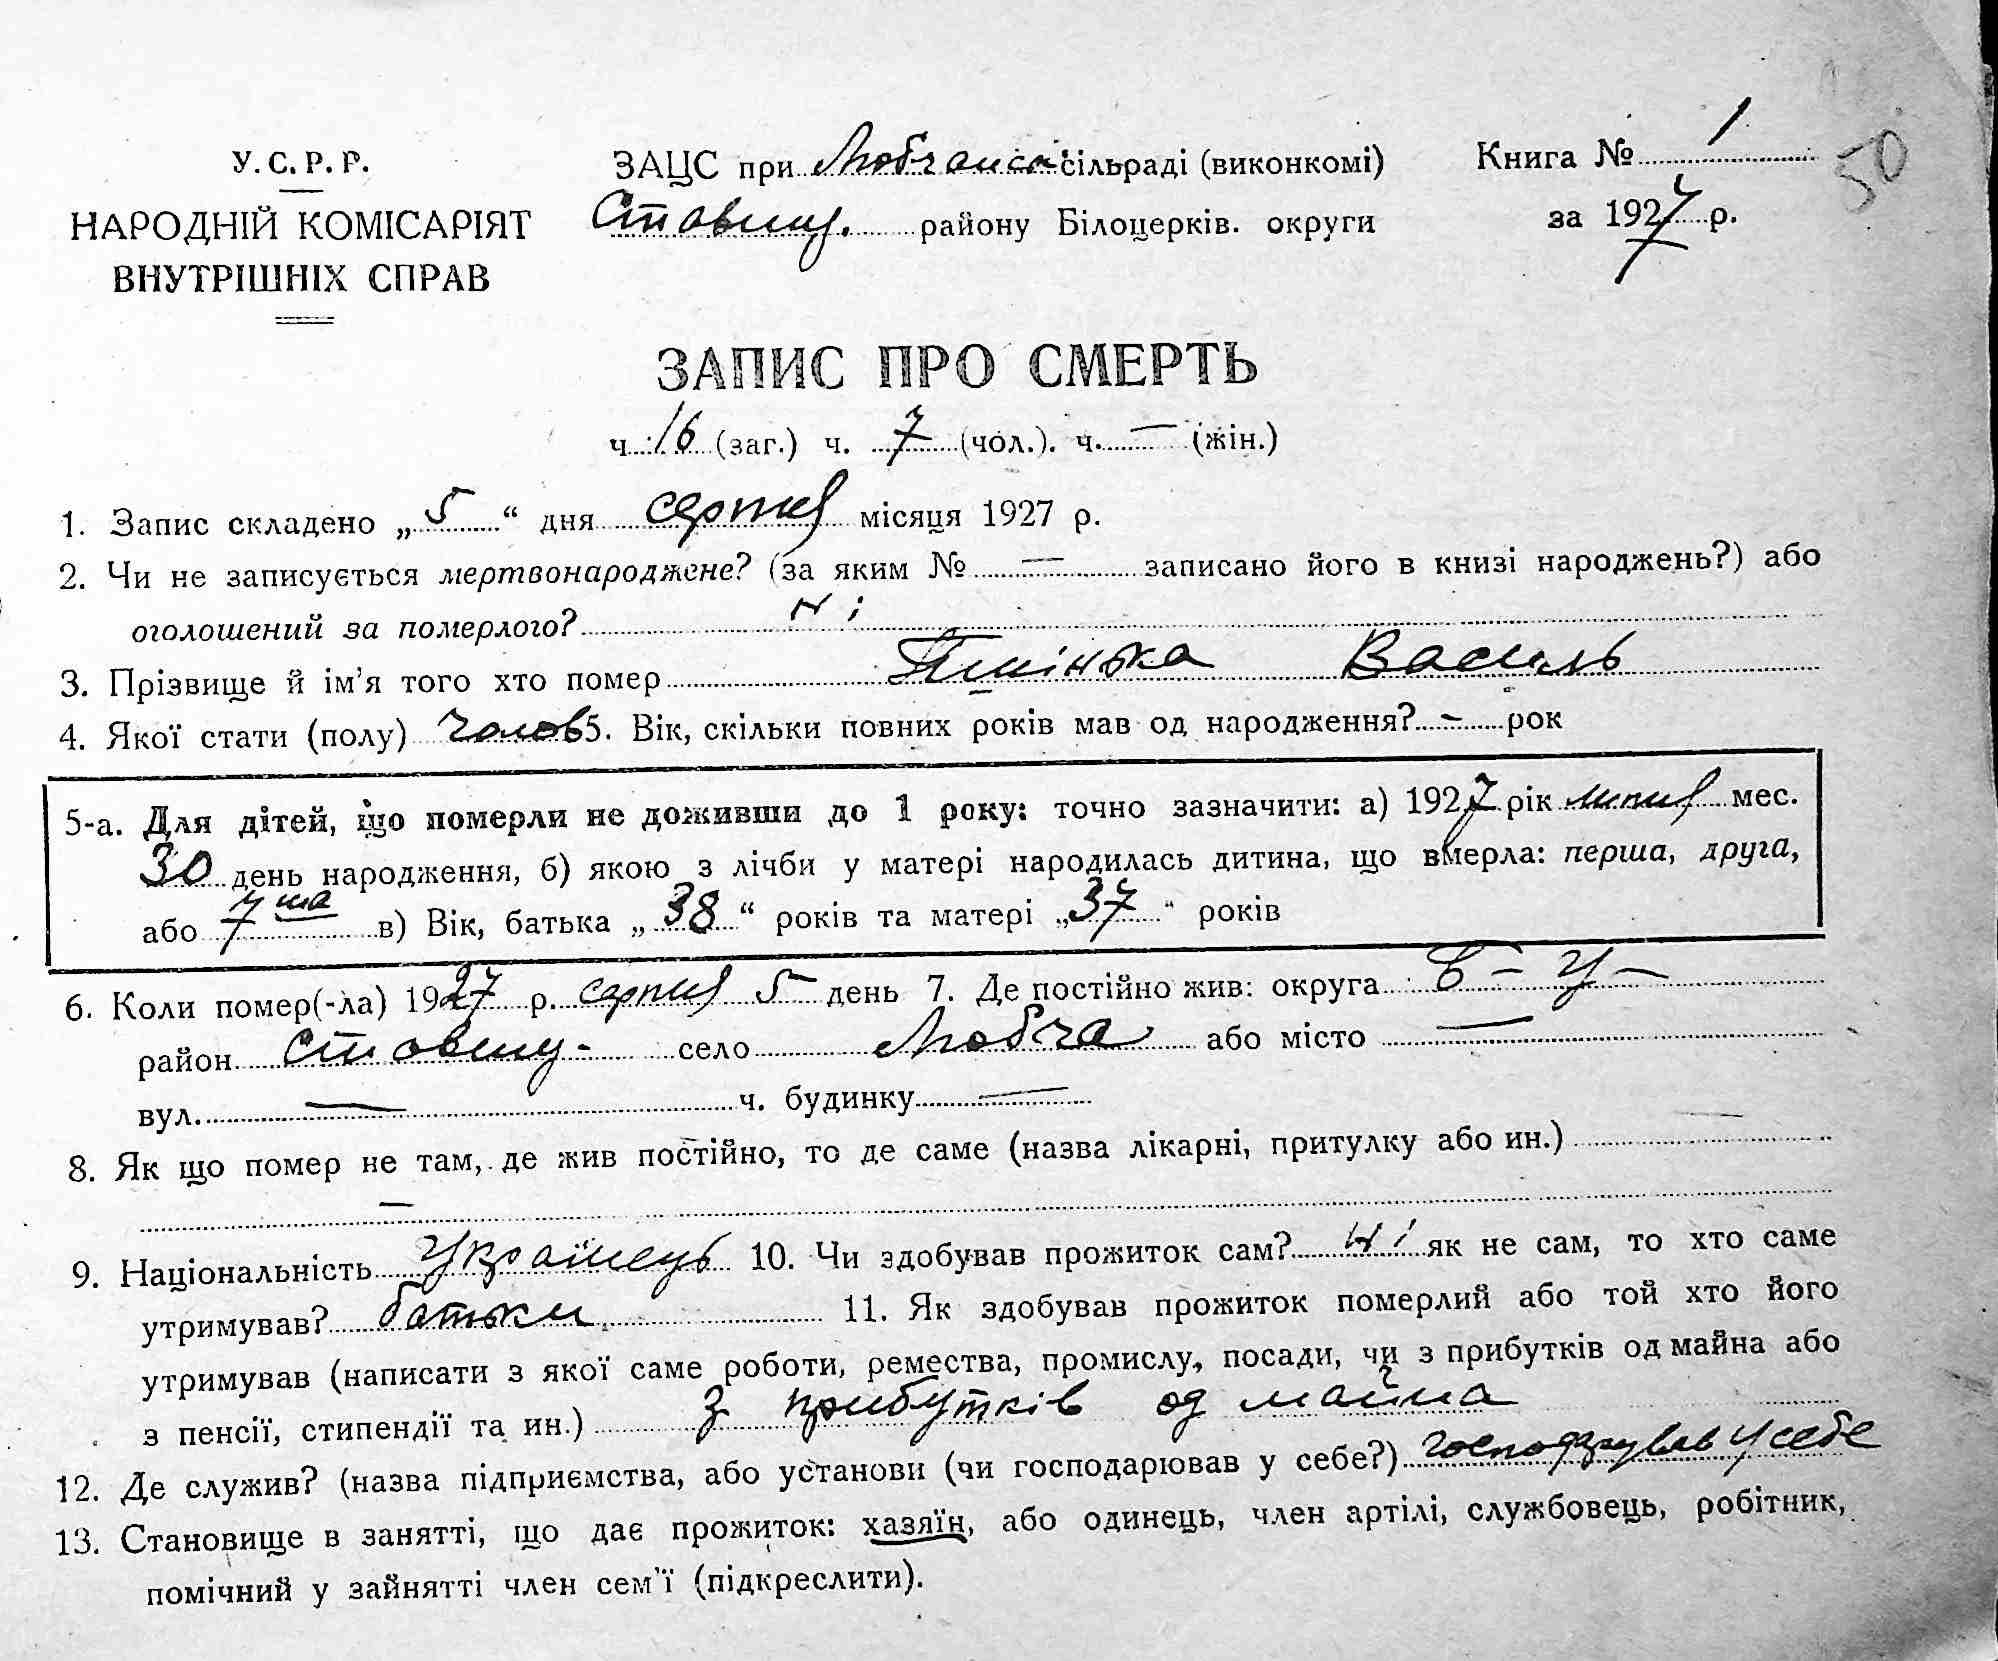 У. С. Р. Р.
НАРОДНІЙ КОМІСАРІЯТ
ВНУТРІШНІХ СПРАВ
ЗАЦС при Любчанс. сільраді (виконкомі)
Ставищ. району Білоцерків. округи
Книга № 1
за 1927 р.
50
ЗАПИС ПРО СМЕРТЬ
ч. 16 (заг.) ч. 7 (чол.). ч. — (жін.)
1. Запис складено „ 5 “ дня серпня місяця 1927 р.
2. Чи не записується мертвонароджене? (за яким № — записано його в книзі народжень?) або
оголошений за померлого? Ні
3. Прізвище й ім'я того хто помер Василь
4. Якої стати (полу) чолов 5. Вік, скільки повних років мав од народження? - рок
5-а. Для дітей, що померли не доживши до 1 року: точно зазначити: а) 1927 рік липня мес.
30 день народження, б) якою з лічби у матері народилась дитина, що вмерла: перша, друга,
або 7 ма в) Вік, батька „ 38 “ років та матері „ 37 “ років
6. Коли помер(-ла) 1927 р. серпня 5 день 7. Де постійно жив: округа Б – Ц –
район Ставищ- село Любча або місто —
вул. — ч. будинку —
8. Як що помер не там, де жив постійно, то де саме (назва лікарні, притулку або ин.) —
—
9. Національність Українець 10. Чи здобував прожиток сам? ні як не сам, то хто саме
утримував? батьки 11. Як здобував прожиток померлий або той хто його
утримував (написати з якої саме роботи, ремества, промислу, посади, чи з прибутків од майна або
з пенсії, стипендії та ин.) з прибутків од майна
12. Де служив? (назва підприємства, або установи (чи господарював у себе?) господарував у себе
13. Становище в занятті, що дає прожиток: хазяїн, або одинець, член артілі, службовець, робітник,
помічний у зайнятті член сем'ї (підкреслити).